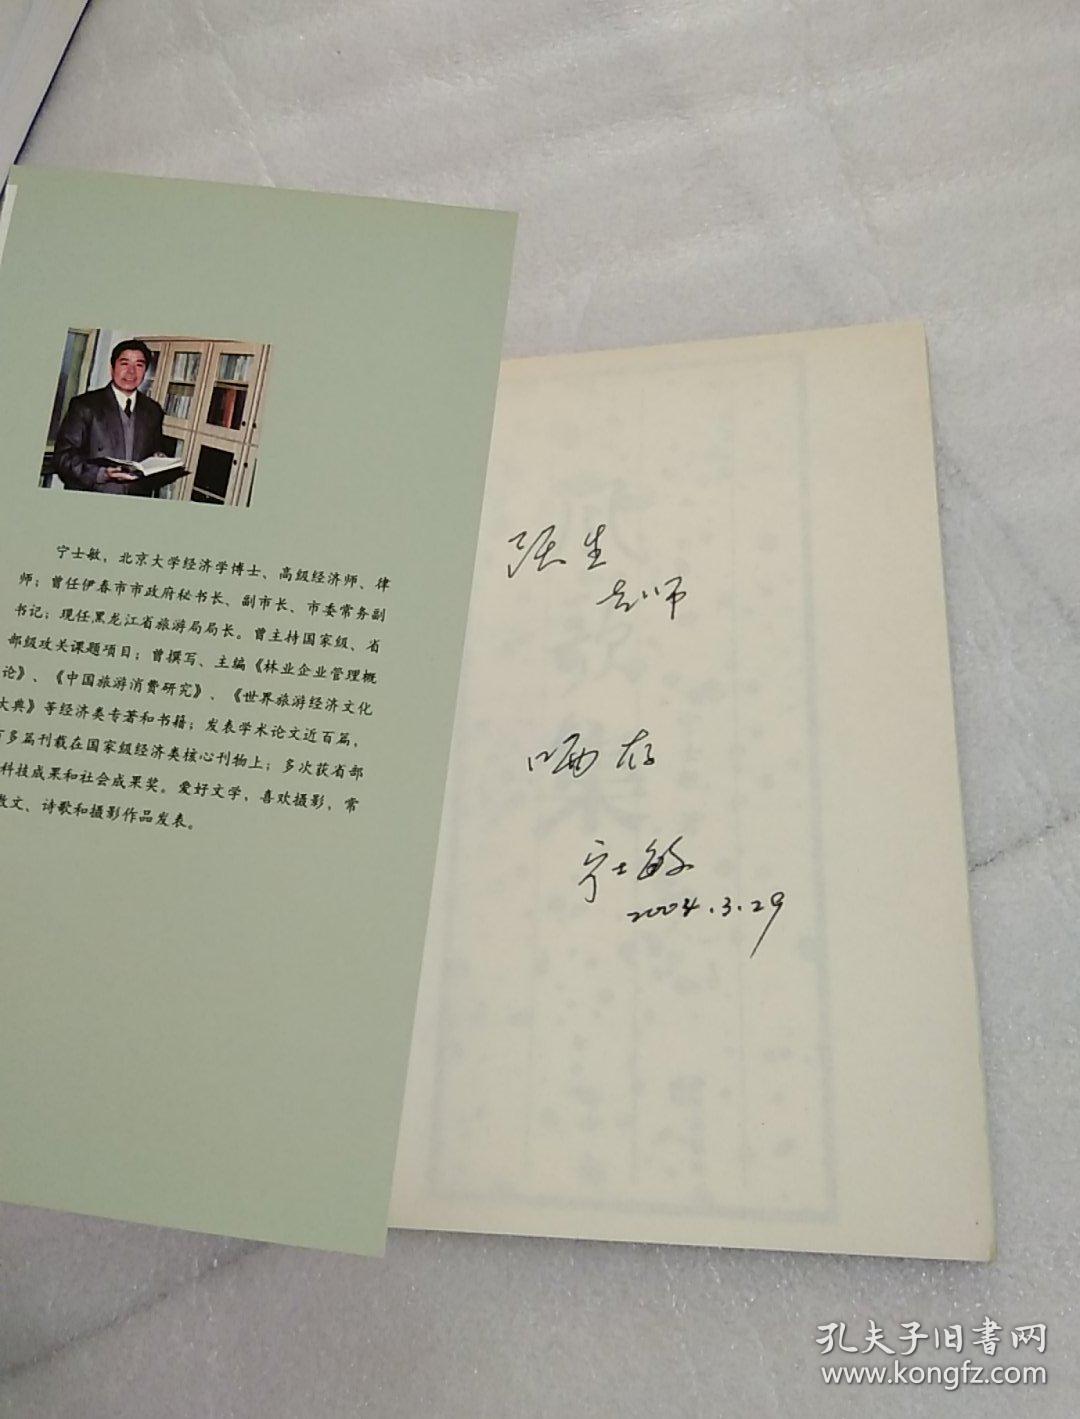 宁士敏，北京大学经济学博士、高级经济师、律
师；曾任伊春市市政府秘书长、副市长、市委常务副
书记；现任黑龙江省旅游局局长。曾主持国家级、省
部级攻关课题项目；曾撰写、主编《林业企业管理概
论》、《中国旅游消费研究》、《世界旅游经济文化
大典》等经济类专著和书籍；发表学术论文近百篇，
多篇刊载在国家级经济类核心刊物上；多次获省部
科技成果和社会成果奖。爱好文学，喜欢摄影，常
散文、诗歌和摄影作品发表。
张生
老师
哂存
宁士敏
2004.3.29
孔夫子旧書网
www.kongfz.com